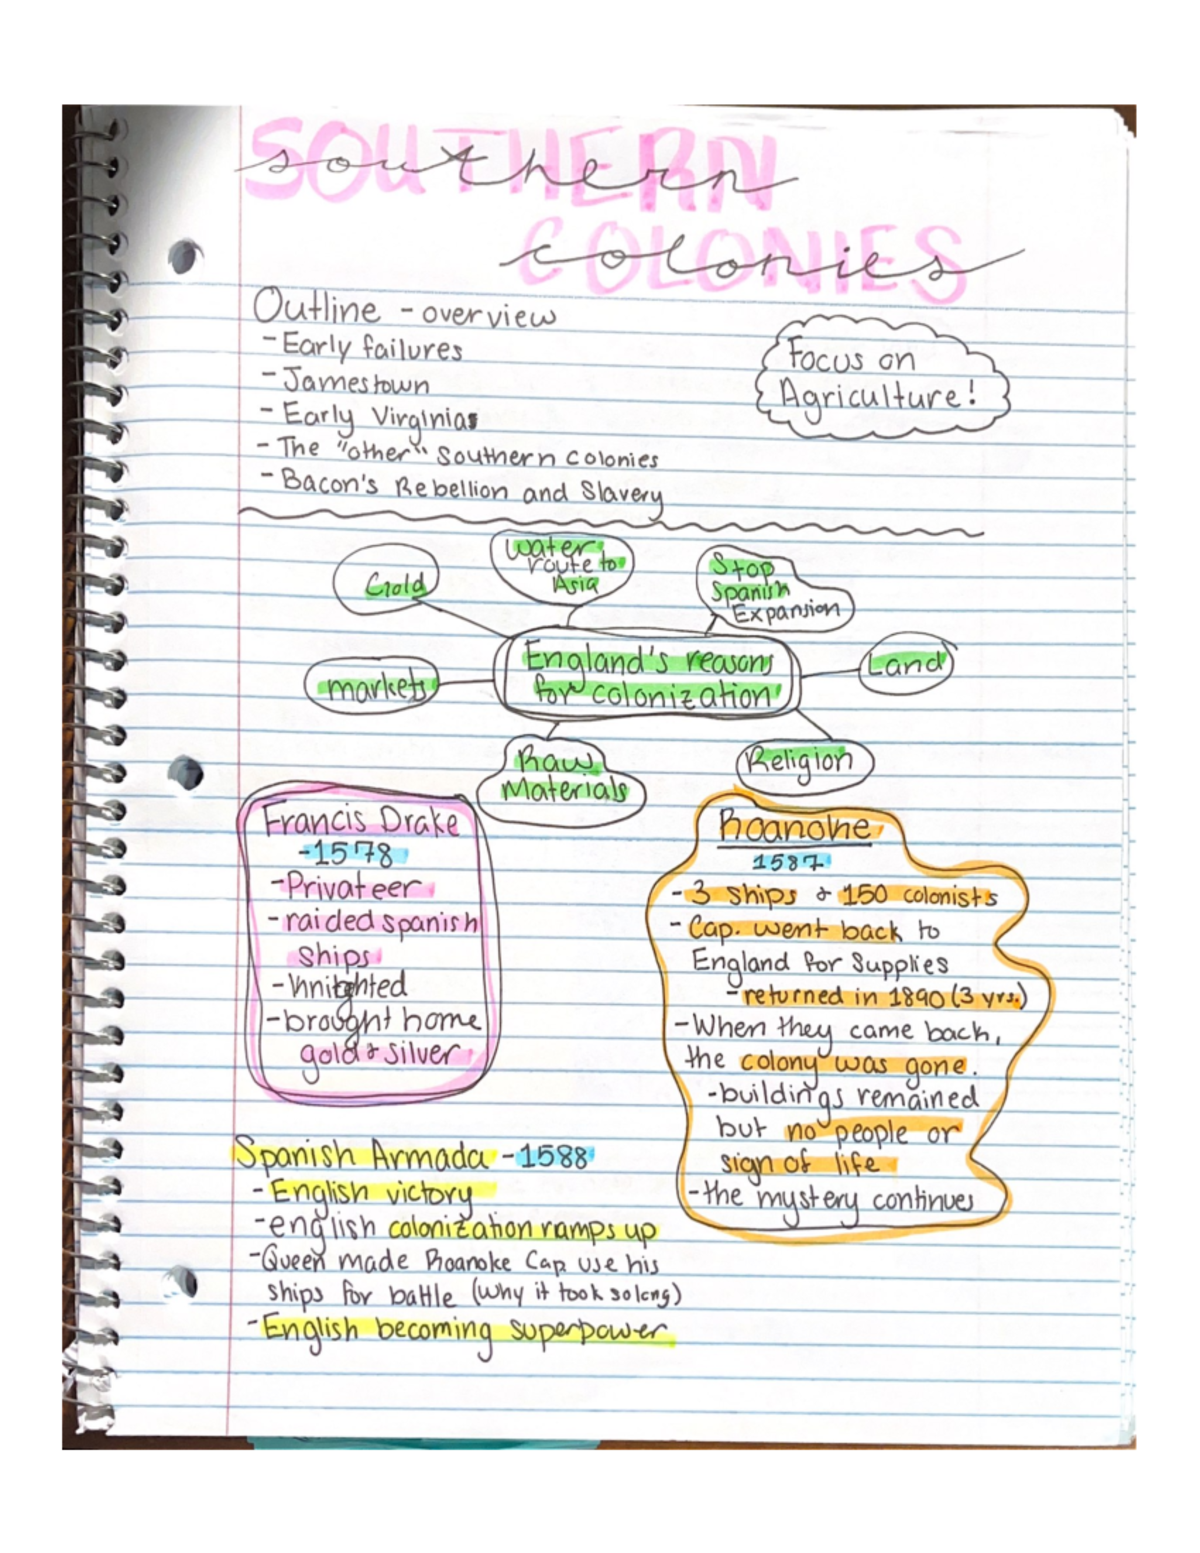 SOUTHERN
southern
COLONIES
colonies
Outline - overview
- Early failures
- Jamestown
- Early Virginias
- The "other" Southern Colonies
- Bacon's Rebellion and Slavery
Focus on
Agriculture!
Gold
Water
route to
Asia
Stop
Spanish
Expansion
England's reasons
for colonization
Land
markets
Raw
Materials
Religion
Francis Drake
-1578
-Privateer
-raided spanish
ships
-knighted
-brought home
gold & silver
Roanoke
1587
- 3 ships & 150 colonists
- Cap. went back to
England for supplies
- returned in 1890 (3 yrs.)
-When they came back,
the colony was gone.
-buildings remained
but no people or
sign of life
-the mystery continues
Spanish Armada -1588
- English victory
-english colonization ramps up
-Queen made Roanoke Cap. use his
ships for battle (why it took so long)
-English becoming superpower